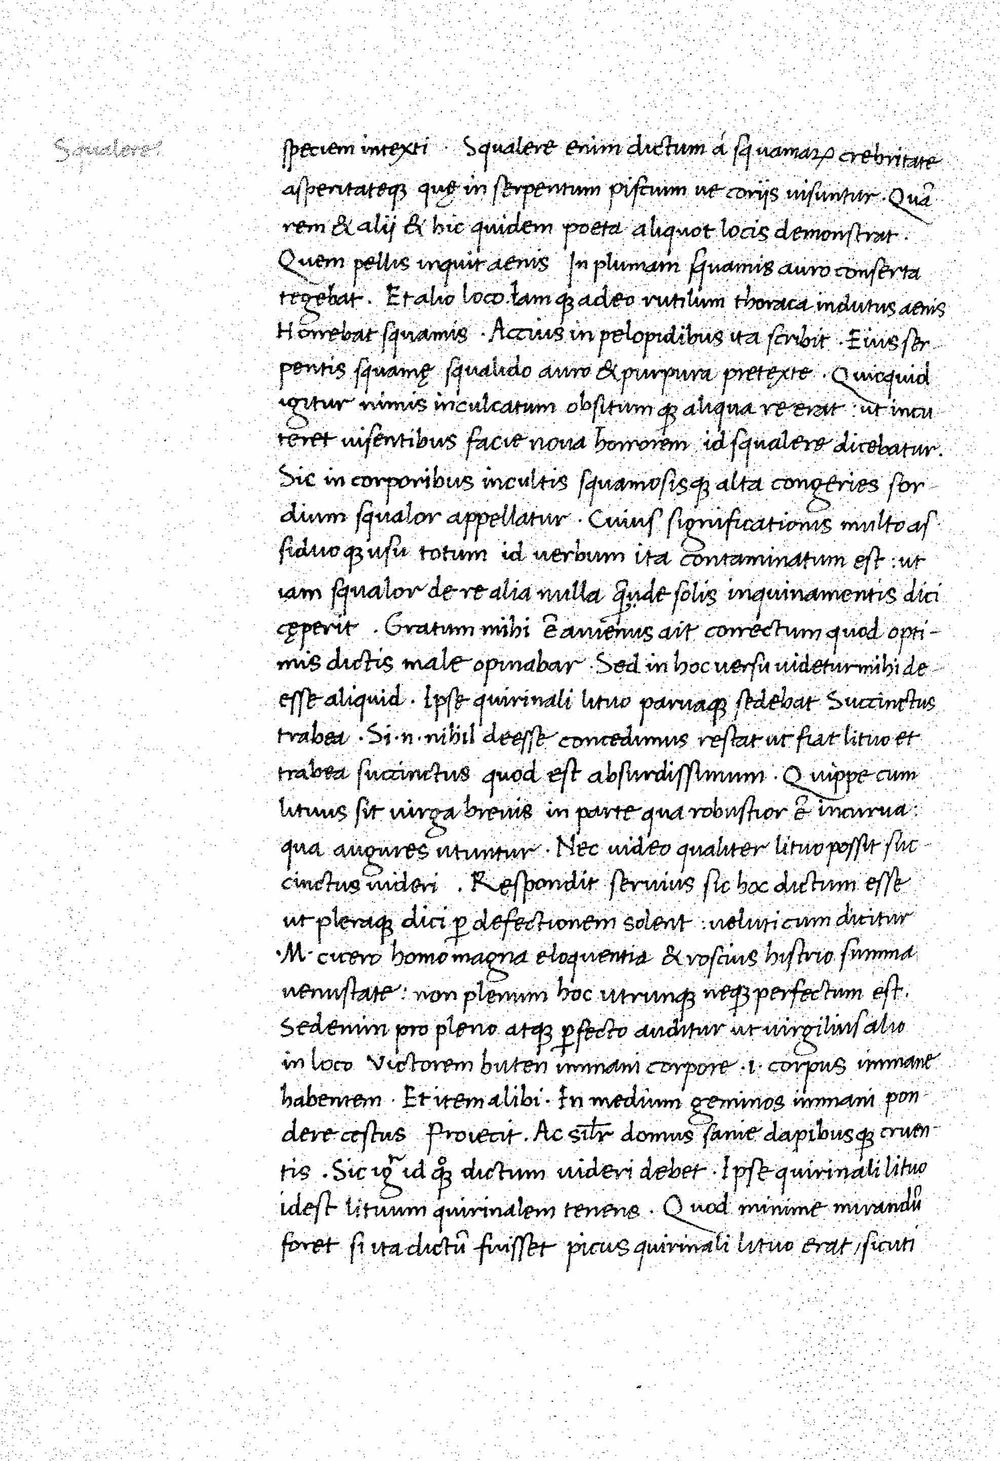 Squalere.
speciem intexti · Squalere enim dictum á squamaꝝ crebritate
asperitateqꝫ quę in serpentum pisciuim ue coriis uisuntur · Quā
rem & alij & hic quidem poeta aliquot locis demonstrat ·
Quem pellis inquit aenis In plumam squamis auro conserta
tegebat . Et alio loco . Iam qꝫ adeo rutilum thoraca indutus aenis
Horrebat squamis · Accius in pelopidibus ita scribit · Eius ser-
pentis squamę squalido auro & purpura pretęxte · Quicquid
igitur nimis inculcatum obsitum qꝫ aliqua re erat : ut incu
teret uisentibus facie noua horrorem id squalere dicebatur.
Sic in corporibus incultis squamosisqꝫ alta congeries sor-
dium squalor appellatur · Cuius significationis multo as
siduo qꝫ usu totum id uerbum ita contaminatum est : ut
iam squalor de re alia nulla de solis inquinamentis dici
cęperit . Gratum mihi ē auienus ait correctum quod opti-
mis dictis male opinabar · Sed in hoc uersu uidetur mihi de-
esse aliquid · Ipse quirinali lituo paruaqꝫ sedebat Succinctus
trabea · Si · n · nihil deesse concedimus restat ut fiat lituo et
trabea succinctus quod est absurdissimum · Quippe cum
lituus sit uirga breuis in parte qua robustior ē incurua :
qua augures utuntur · Nec uideo qualiter lituo possit suc-
cinctus uideri . Respondit seruius sic hoc dictum esse
ut pleraqꝫ dici ꝑ defectionem solent : ueluti cum dicitur
·M· cicero homo magna eloquentia & roscius histrio summa
uenustate : non plenum hoc utrunqꝫ neqꝫ perfectum est.
Sed enim pro pleno atqꝫ ꝑfecto auditur ut uirgilius alio
in loco Victorem buten immani corpore · i · corpus immane
habentem · Et item alibi · In medium geminos immani pon
dere cestus Proiecit . Ac sil̄r domus sanie dapibusqꝫ cruen-
tis . Sic igͬ id qꝫ dictum uideri debet · Ipse quirinali lituo
idest lituum quirinalem tenens · Quod minime mirandū
foret si ita dictū fuisset picus quirinali lituo erat, sicuti